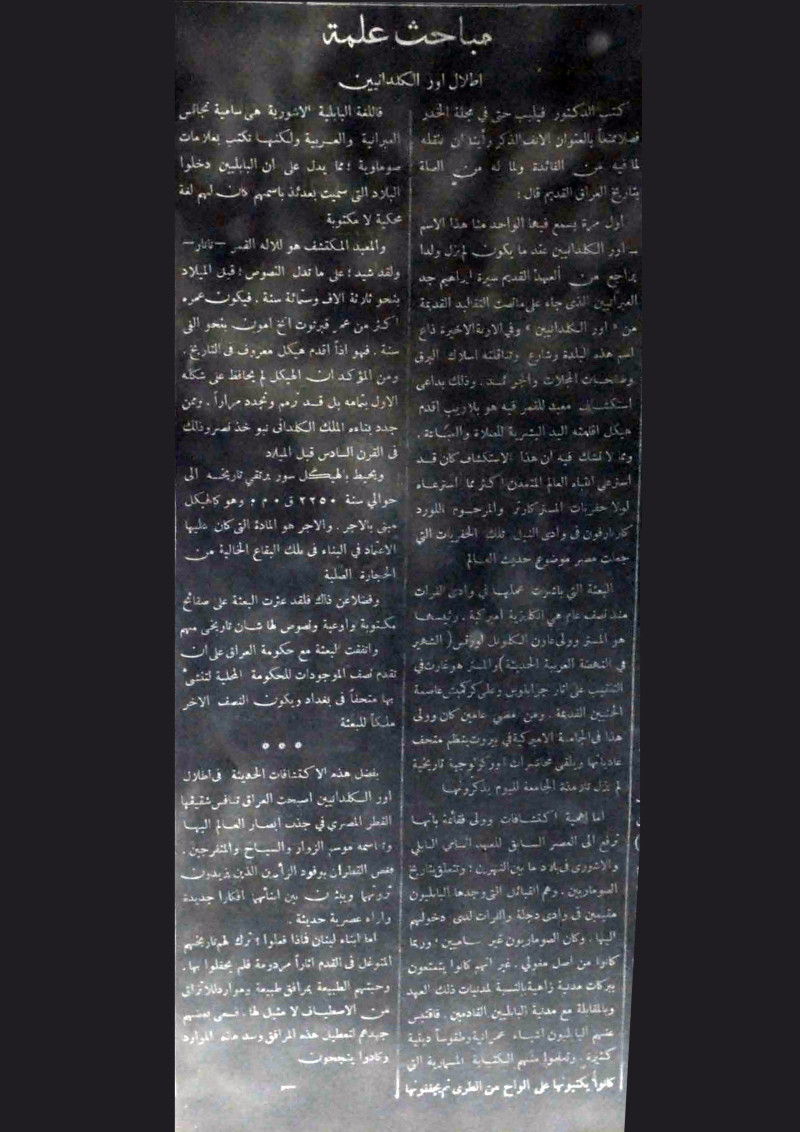 مباحث علمة
اطلال اور الكلدانيين
كتب الدكتور فيليب حتى في مجلة الخدر
فصلا ممتعاً بالعنوان الانف الذكر رأينا ان ننقله
لما فيه من الفائدة ولما له من الصلة
بتاريخ العراق القديم قال :
اول مرة يسمع فيها الواحد منا هذا الاسم
ــ اور الكلدانيين عند ما يكون لم يزل ولدا
يراجع من العهد القديم سيرة ابراهيم جد
العبرانيين الذى جاء على مانصت التقاليد القديمة
من « اور الكلدانيين » وفي الاونة الاخيرة ذاع
اسم هذه البلدة وشارع وتناقلته اسلاك البرق
وصفحات المجلات والجرائد . وذلك بداعى
استكشاف معبد للقمر فيه هو بلا ريب اقدم
هيكل اقامته اليد البشرية للصلاة والعبادة .
ومما لا شك فيه ان هذا الاستكشاف كان قد
استرعى انتباه العالم المتمدن اكثر مما استرعاه
لولا حفريات المستر كارتر والمرحوم اللورد
كارنارفون فى وادى النيل تلك الحفريات التي
جعلت مصر موضوع حديث العالم
البعثة التي باشرت عملها في وادى الفرات
منذ نصف عام هي انكليزية اميركية . رئيسها
هو المستر وولى عاون الكلونل لورنس ( الشهير
في النهضة العربية الحديثة ) والمستر هوغارث فى
التنقيب على اثار جرابلوس وعلى كركميش عاصمة
الحثيين القديمة . ومن مضي عامين كان وولى
هذا فى الجامعة الاميركية في بيروت ينظم متحف
عادياتها ويلقى محاضرات اوركيولوجية تاريخية
لم يزل تلامذة الجامعة لليوم يذكرونها
اما اهمية اكتشافات وولى فقائمة بانها
ترقع الى العصر السابق للعهد السامى البابلي
والاشورى فى بلاد ما بين النهرين ؛ وتتعلق بتاريخ
الصوماريين . وهم القبائل التى وجدها البابليون
مقيمين فى وادى دجلة والفرات لدى دخولهم
اليها . وكان الصوماريون غير ساميين ؛ وربما
كانوا من اصل مغولي . غير انهم كانوا يتمتعون
ببركات مدنية زاهية بالنسبة لمدنيات ذلك العهد
وبالمقابلة مع مدنية البابليين القادمين . فاقتبس
عنهم البابليون اشياء عمرانية وطقوساً دينية
كثيرة . وتعلموا منهم الكتابة المسمارية التى
كانوا يكتبونها على الواح من الطرى ثم يجففونها
فاللغة البابلية الاشورية هى سامية تجانس
العبرانية والعربية ولكنها تكتب بعلامات
صوماوية ؛ مما يدل على ان البابليين دخلوا
البلاد التى سميت بعدئذ باسمهم كان لهم لغة
محكية لا مكتوبة
والمعبد المكتشف هو للاله القمر ـــ نانار ـــ
ولقد شيد ؛ على ما تدل النصوص ؛ قبل الميلاد
بنحو ثلاثة الاف وستمائة سنة . فيكون عمره
اكثر من عمر قبر توت انخ امون بنحو الفى
سنة . فهو اذاً اقدم هيكل معروف فى التاريخ .
ومن المؤكد ان الهيكل لم يحافظ على شكله
الاول بتمامه بل قد ترمم وتجدد مراراً . وممن
جدد بناءه الملك الكلدانى نبو خذ نصر وذلك
فى القرن السادس قبل الميلاد
ويحيط بالهيكل سور يرتقي تاريخه الى
حوالي سنة ٢٢٥٠ ق . م . وهو كالهيكل
مبنى بالاجر . والاجر هو المادة التى كان عليها
الاعتماد في البناء فى تلك البقاع الخالية من
الحجارة الصلبة
وفضلا عن ذلك فلقد عثرت البعثة على صفائح
مكتوبة واوعية ونصوص لها شان تاريخى مهم
واتفقت البعثة مع حكومة العراق على ان
تقدم نصف الموجودات للحكومة المحلية لتنشئ
بها متحفاً فى بغداد ويكون النصف الاخر
ملكاً للبعثة
بفضل هذه الاكتشافات الحديثة فى اطلال
اور الكلدانيين اصبحت العراق تنافس شقيقها
القطر المصري في جذب ابصار العالم اليها
واسمه موسم الزوار والسياح والمتفرجين .
فغص القطران بوفود الزائرين الذين يزيدون
ثروتهما ويبثون بين ابنائهما افكارا جديدة
واراء عصرية حديثة .
اما ابناء لبنان فماذا فعلوا ؛ ترك لهم تاريخهم
المتوغل فى القدم اثاراً مردومة فلم يحفلوا بها .
وحبتهم الطبيعة بمرافق طبيعة وموارد للارتزاق
من الاصطياف لا مثيل لها . فسعى بعضهم
جهدهم لتعطيل هذه المرافق وسد هذه الموارد
وكادوا ينجحون